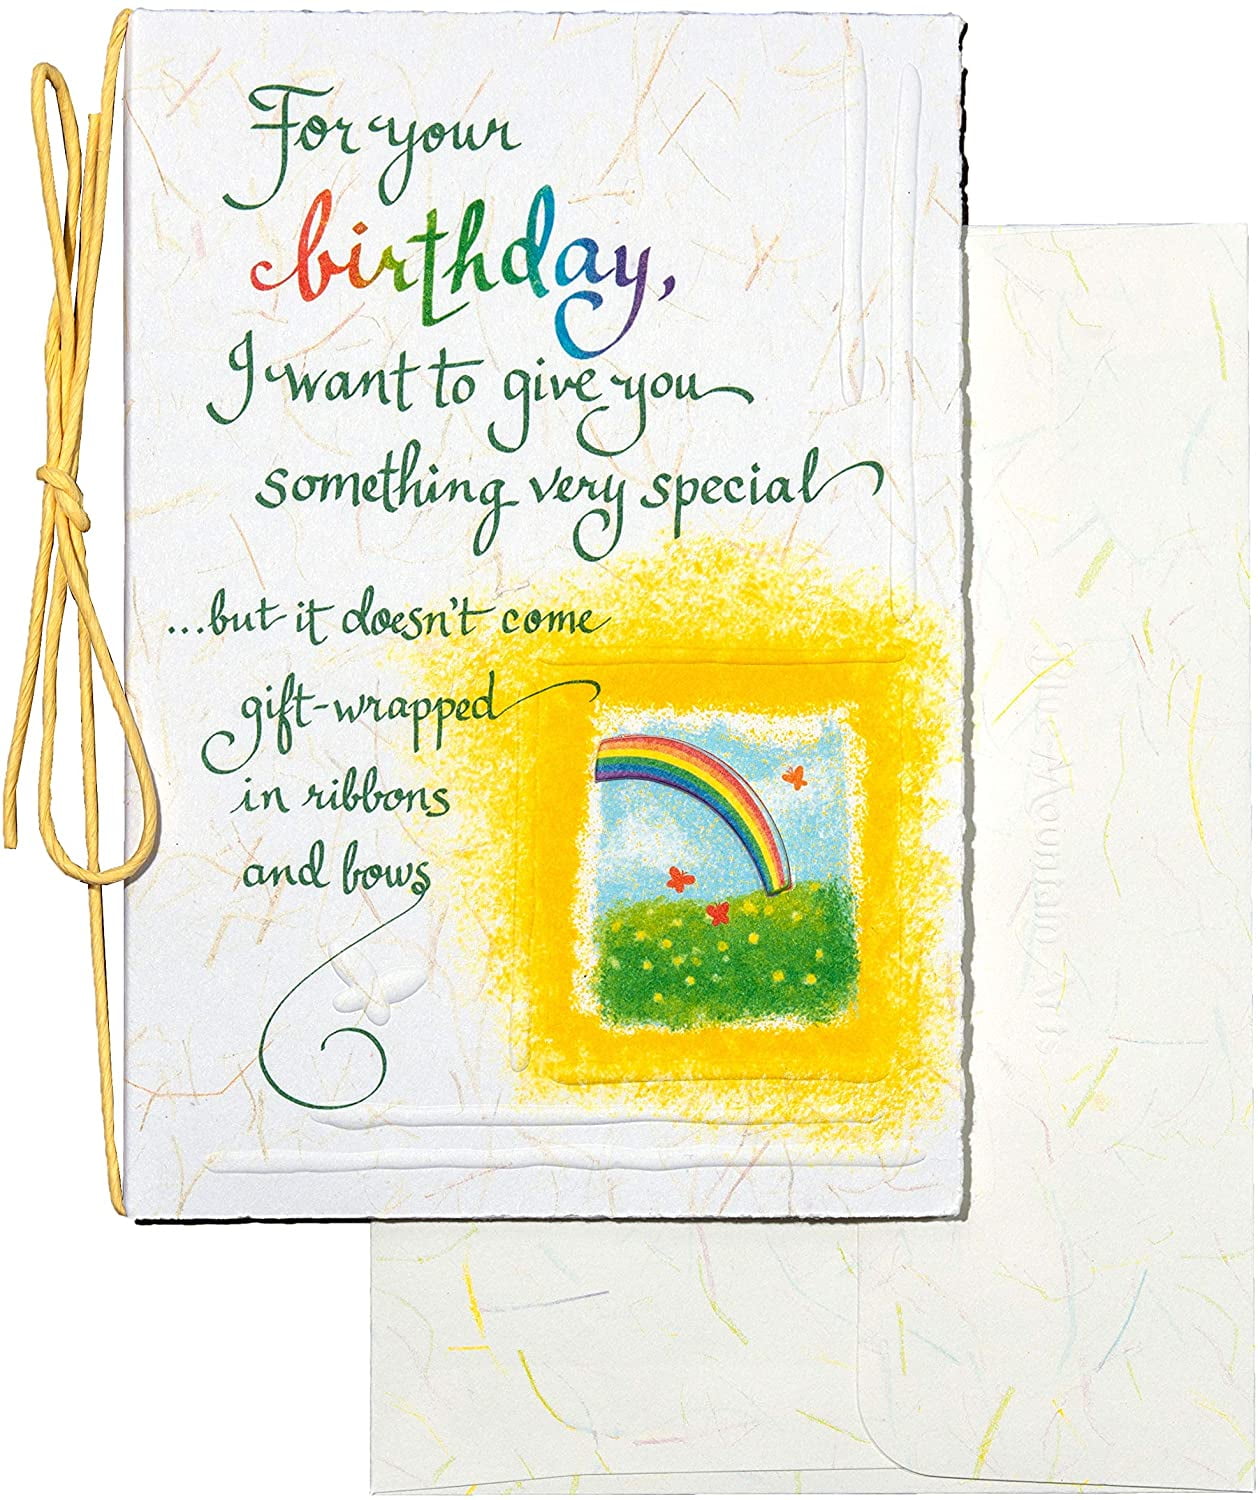 For your
birthday,
I want to give you
something very special
...but it doesn't come
gift-wrapped
in ribbons
and bows
Blue Mountain Arts